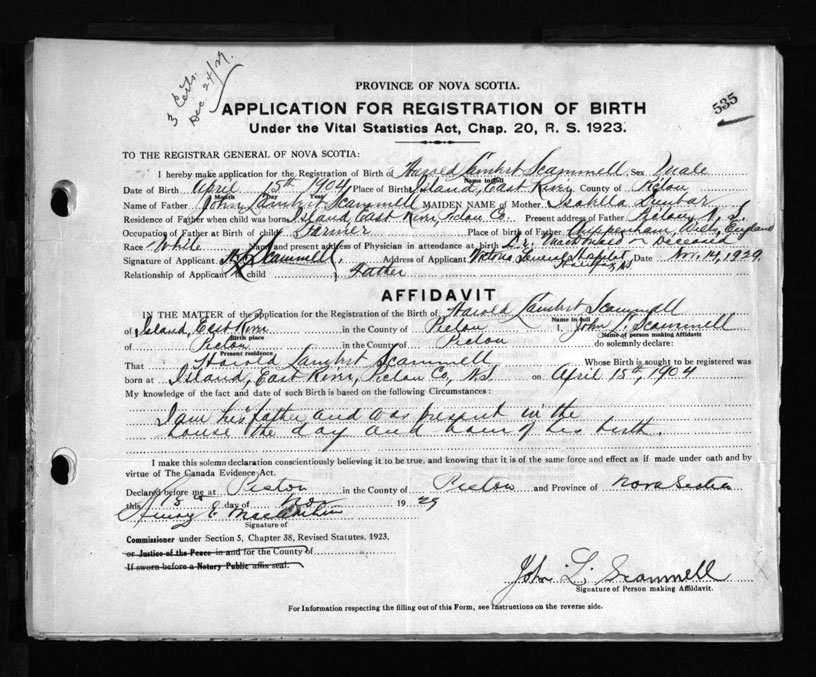 3 Certs.
Dec. 24/29.
535
PROVINCE OF NOVA SCOTIA.
APPLICATION FOR REGISTRATION OF BIRTH
Under the Vital Statistics Act, Chap. 20, R. S. 1923.
TO THE REGISTRAR GENERAL OF NOVA SCOTIA:
I hereby make application for the Registration of Birth of Harold Lambert Scammell Sex Male
Name in full
Date of Birth April 15th 1904 Place of Birth Island, East River, County of Pictou
Month Day Year
Name of Father John Lambert Scammell MAIDEN NAME of Mother Isabella Dunbar
Residence of Father when child was born Island East River, Pictou Co. Present address of Father N. S.
Occupation of Father at Birth of child Farmer Place of birth of Father Chippenham, Wilts, England
Race White Name and present address of Physician in attendance at birth Dr. MacDonald - Deceased
Signature of Applicant Scammell Address of Applicant Victoria General Hospital Halifax, N.S. Date Nov. 14, 1929.
Relationship of Applicant to child Father
AFFIDAVIT
IN THE MATTER of the application for the Registration of the Birth of Harold Lambert Scammell
Name in full
of Island, East River in the County of Pictou I, John L. Scammell
Birth place Name of person making Affidavit
of Pictou in the County of Pictou do solemnly declare:
Present residence
That Harold Lambert Scammell Whose Birth is sought to be registered was
born at Island, East River, Pictou Co., N.S. on April 15th, 1904
My knowledge of the fact and date of such Birth is based on the following Circumstances:
I am his father and was present in the
house the day and hour of his birth.
I make this solemn declaration conscientiously believing it to be true, and knowing that it is of the same force and effect as if made under oath and by
virtue of The Canada Evidence Act.
Declared before me at Pictou in the County of Pictou and Province of Nova Scotia
this 15 day of Nov 1929
Signature of
Commissioner under Section 5, Chapter 38, Revised Statutes, 1923,
or Justice of the Peace in and for the County of
If sworn before a Notary Public affix seal.
John L. Scammell
Signature of Person making Affidavit.
For Information respecting the filling out of this Form, see Instructions on the reverse side.